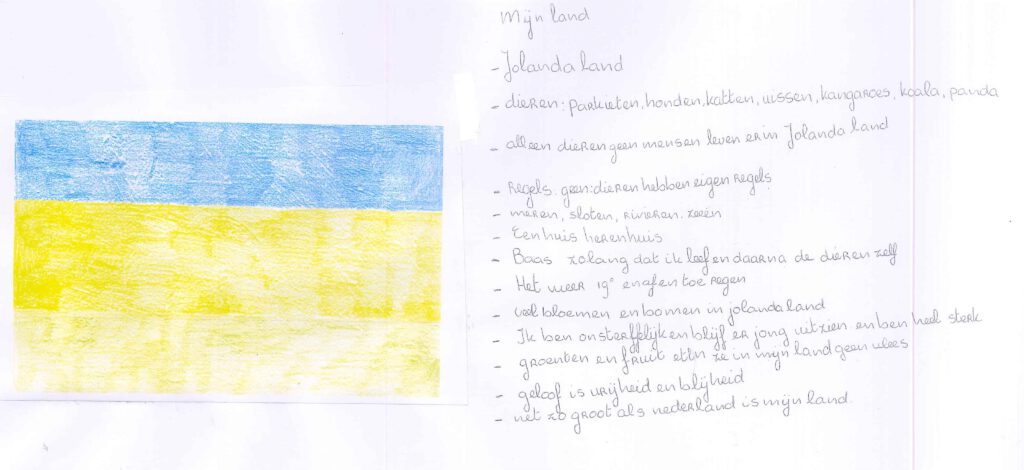 Mijn land
- Jolanda land
- dieren: parkieten, honden, katten, vissen, kangaroes, koala, panda
- alleen dieren geen mensen leven er in Jolanda land
- Regels: geen: dieren hebben eigen regels
- meren, sloten, rivieren. zeeën
- Een huis herenhuis
- Baas zolang dat ik leef en daarna de dieren zelf
- Het weer 19° en af en toe regen
- veel bloemen en bomen in jolanda land
- Ik ben onsterfelijk en blijf er jong uitzien en ben heel sterk
- groenten en fruit eten ze in mijn land geen vlees
- geloof is vrijheid en blijheid
- net zo groot als nederland is mijn land.